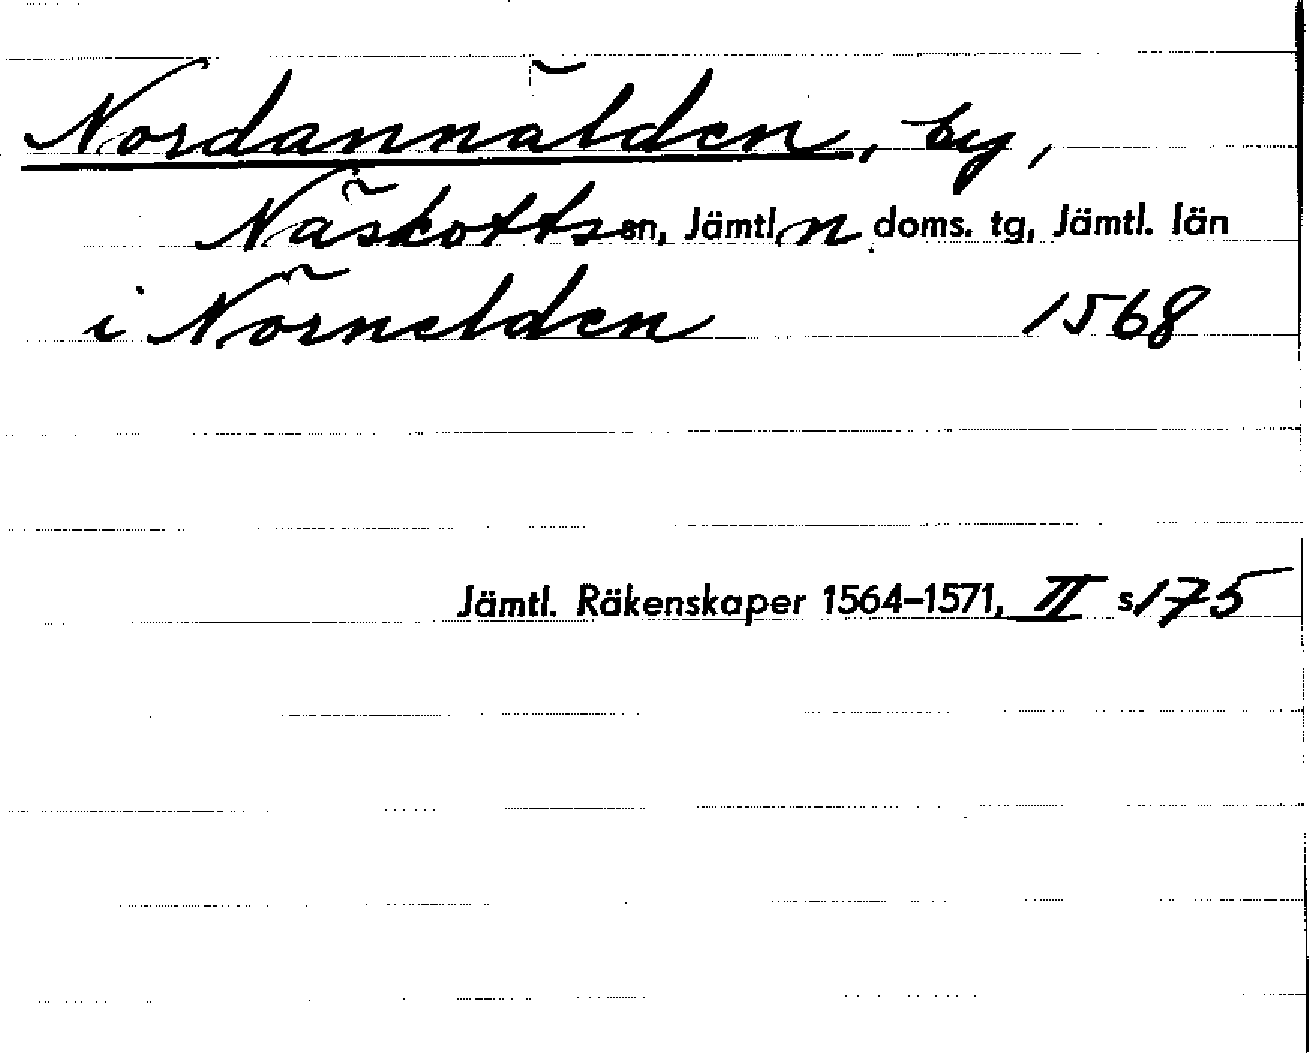 Nordannälden, by,
Näskotts sn, Jämtl. n doms. tg, Jämtl. län
i Nörnelden 1568
Jämtl. Räkenskaper 1564–1571, II s. 175